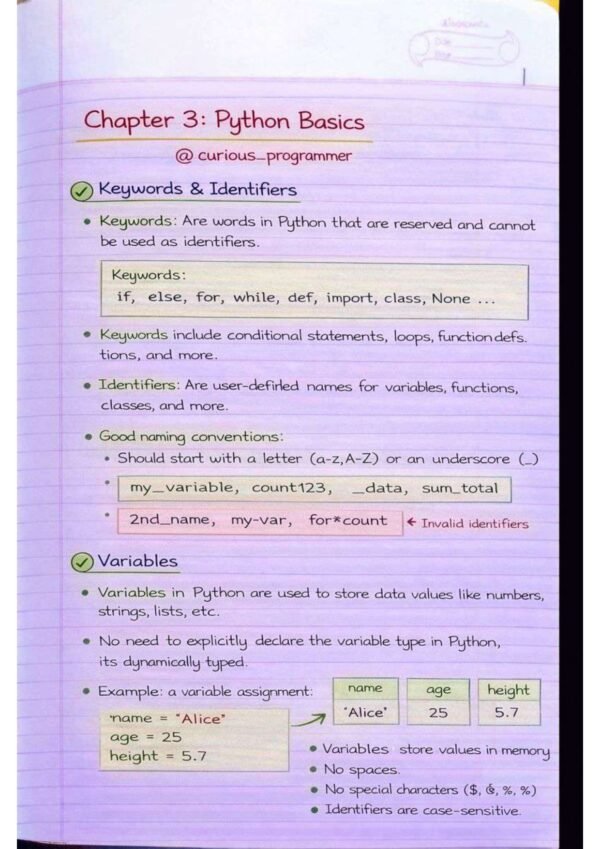 Chapter 3: Python Basics
@ curious_programmer
Keywords & Identifiers
• Keywords: Are words in Python that are reserved and cannot
be used as identifiers.
Keywords:
if, else, for, while, def, import, class, None ...
• Keywords include conditional statements, loops, function defs.
tions, and more.
• Identifiers: Are user-defirled names for variables, functions,
classes, and more.
• Good naming conventions:
• Should start with a letter (a-z,A-Z) or an underscore (_)
• my_variable, count123, _data, sum_total
• 2nd_name, my-var, for*count ← Invalid identifiers
Variables
• Variables in Python are used to store data values like numbers,
strings, lists, etc.
• No need to explicitly declare the variable type in Python,
its dynamically typed.
• Example: a variable assignment:
name = "Alice"
age = 25
height = 5.7
name age height
'Alice' 25 5.7
• Variables store values in memory
• No spaces.
• No special characters ($, &, %, %)
• Identifiers are case-sensitive.